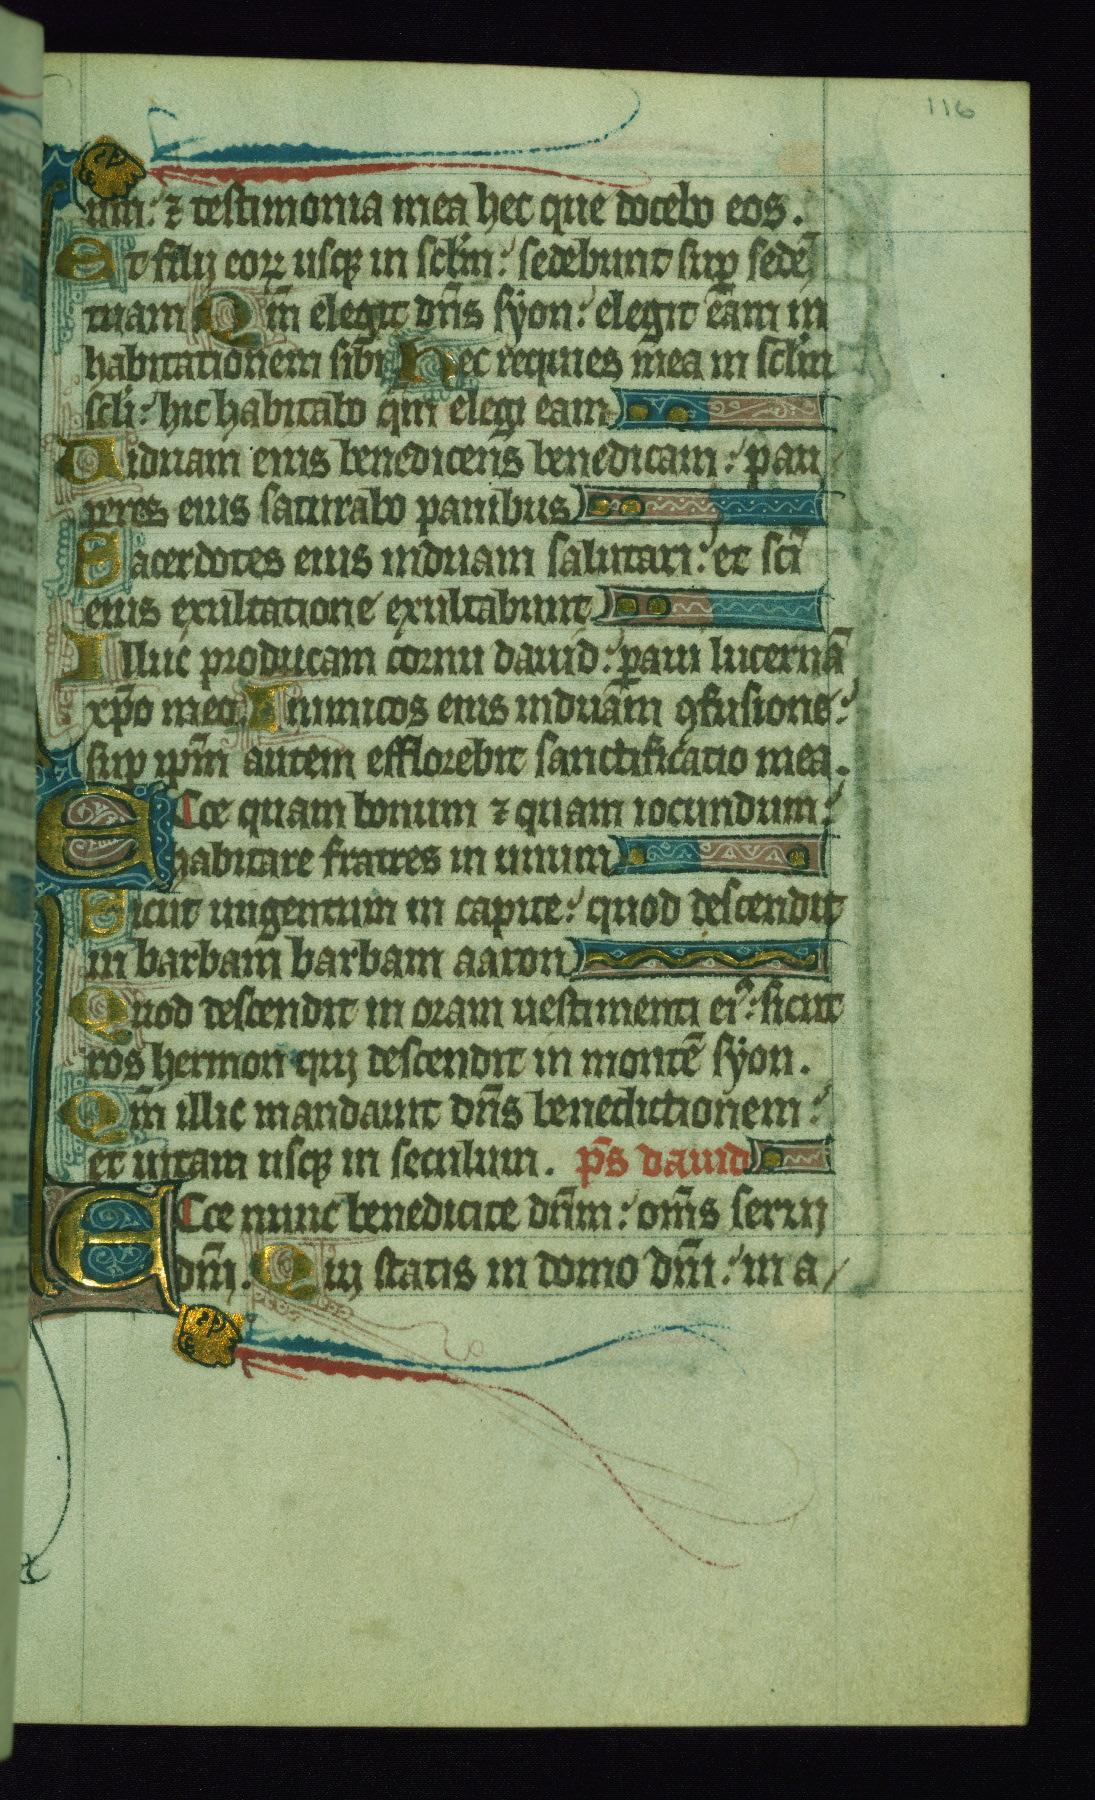 116
um: ⁊ testimonia mea hec que docebo eos.
Et filij eoꝝ usqꝫ in sc̄lm: sedebunt suꝑ sedē
tuam Qm̄ elegit dn̄s syon: elegit eam in
habitationem sibi Hec requies mea in sc̄lm
sc̄li: hic habitabo qm̄ elegi eam
Uiduam eius benedicens benedicam: pau
peres eius saturabo panibus
Sacerdotes eius induam salutari: et sc̄i
eius exultatione exultabunt
Illuc producam cornu dauid: paui lucernā
xp̄o meo. Inimicos eius induam ꝯfusione:
suꝑ ip̄m autem efflorebit sanctificatio mea.
Ecce quam bonum ⁊ quam iocundum:
habitare fratres in unum
Sicut ungentum in capite: quod descendit
in barbam barbam aaron
Quod descendit in oram uestimenti eiꝰ: sicut
ros hermon quj descendit in montē syon.
Qm̄ illic mandauit dn̄s benedictionem:
et uitam usqꝫ in seculum. p̄s dauid
Ecce nunc benedicite dn̄m: om̄s seruj
dn̄j. Quj statis in domo dn̄i: in a/